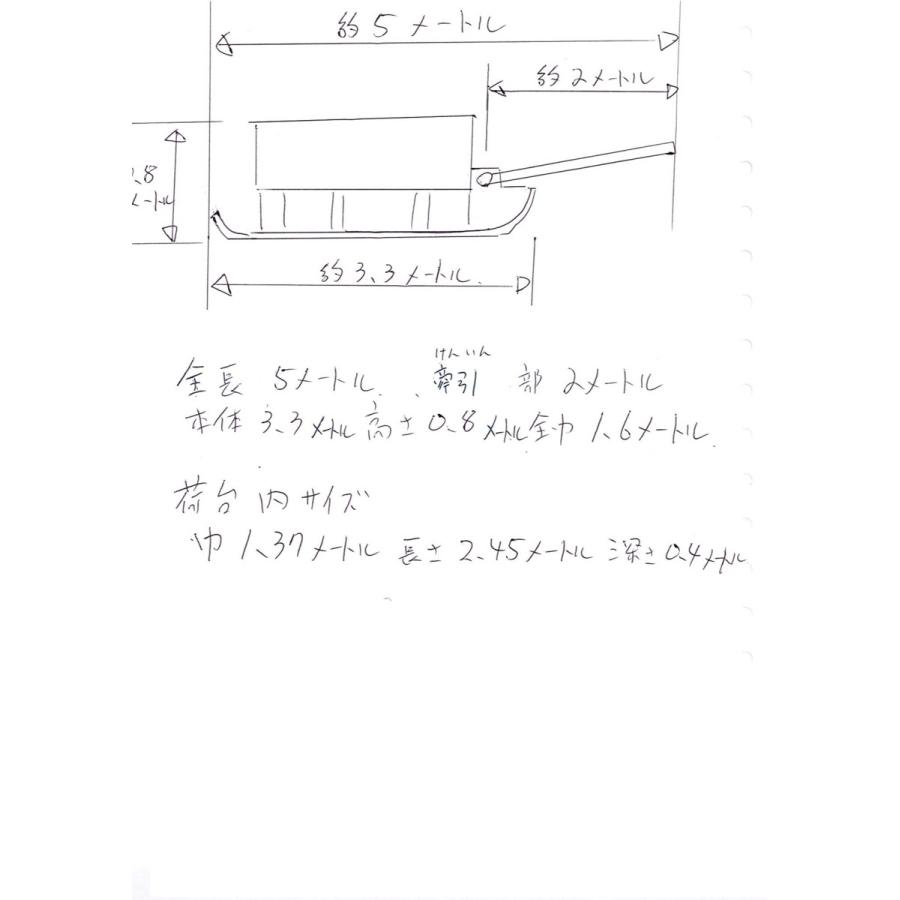 約5メートル
約2メートル
.8
メートル
約3.3メートル.
けんいん
全長 5メートル. 牽引部 2メートル
本体 3.3メートル 高さ0.8メートル全巾 1.6メートル.
荷台 内サイズ
巾 1.37メートル 長さ 2.45メートル 深さ0.4メートル